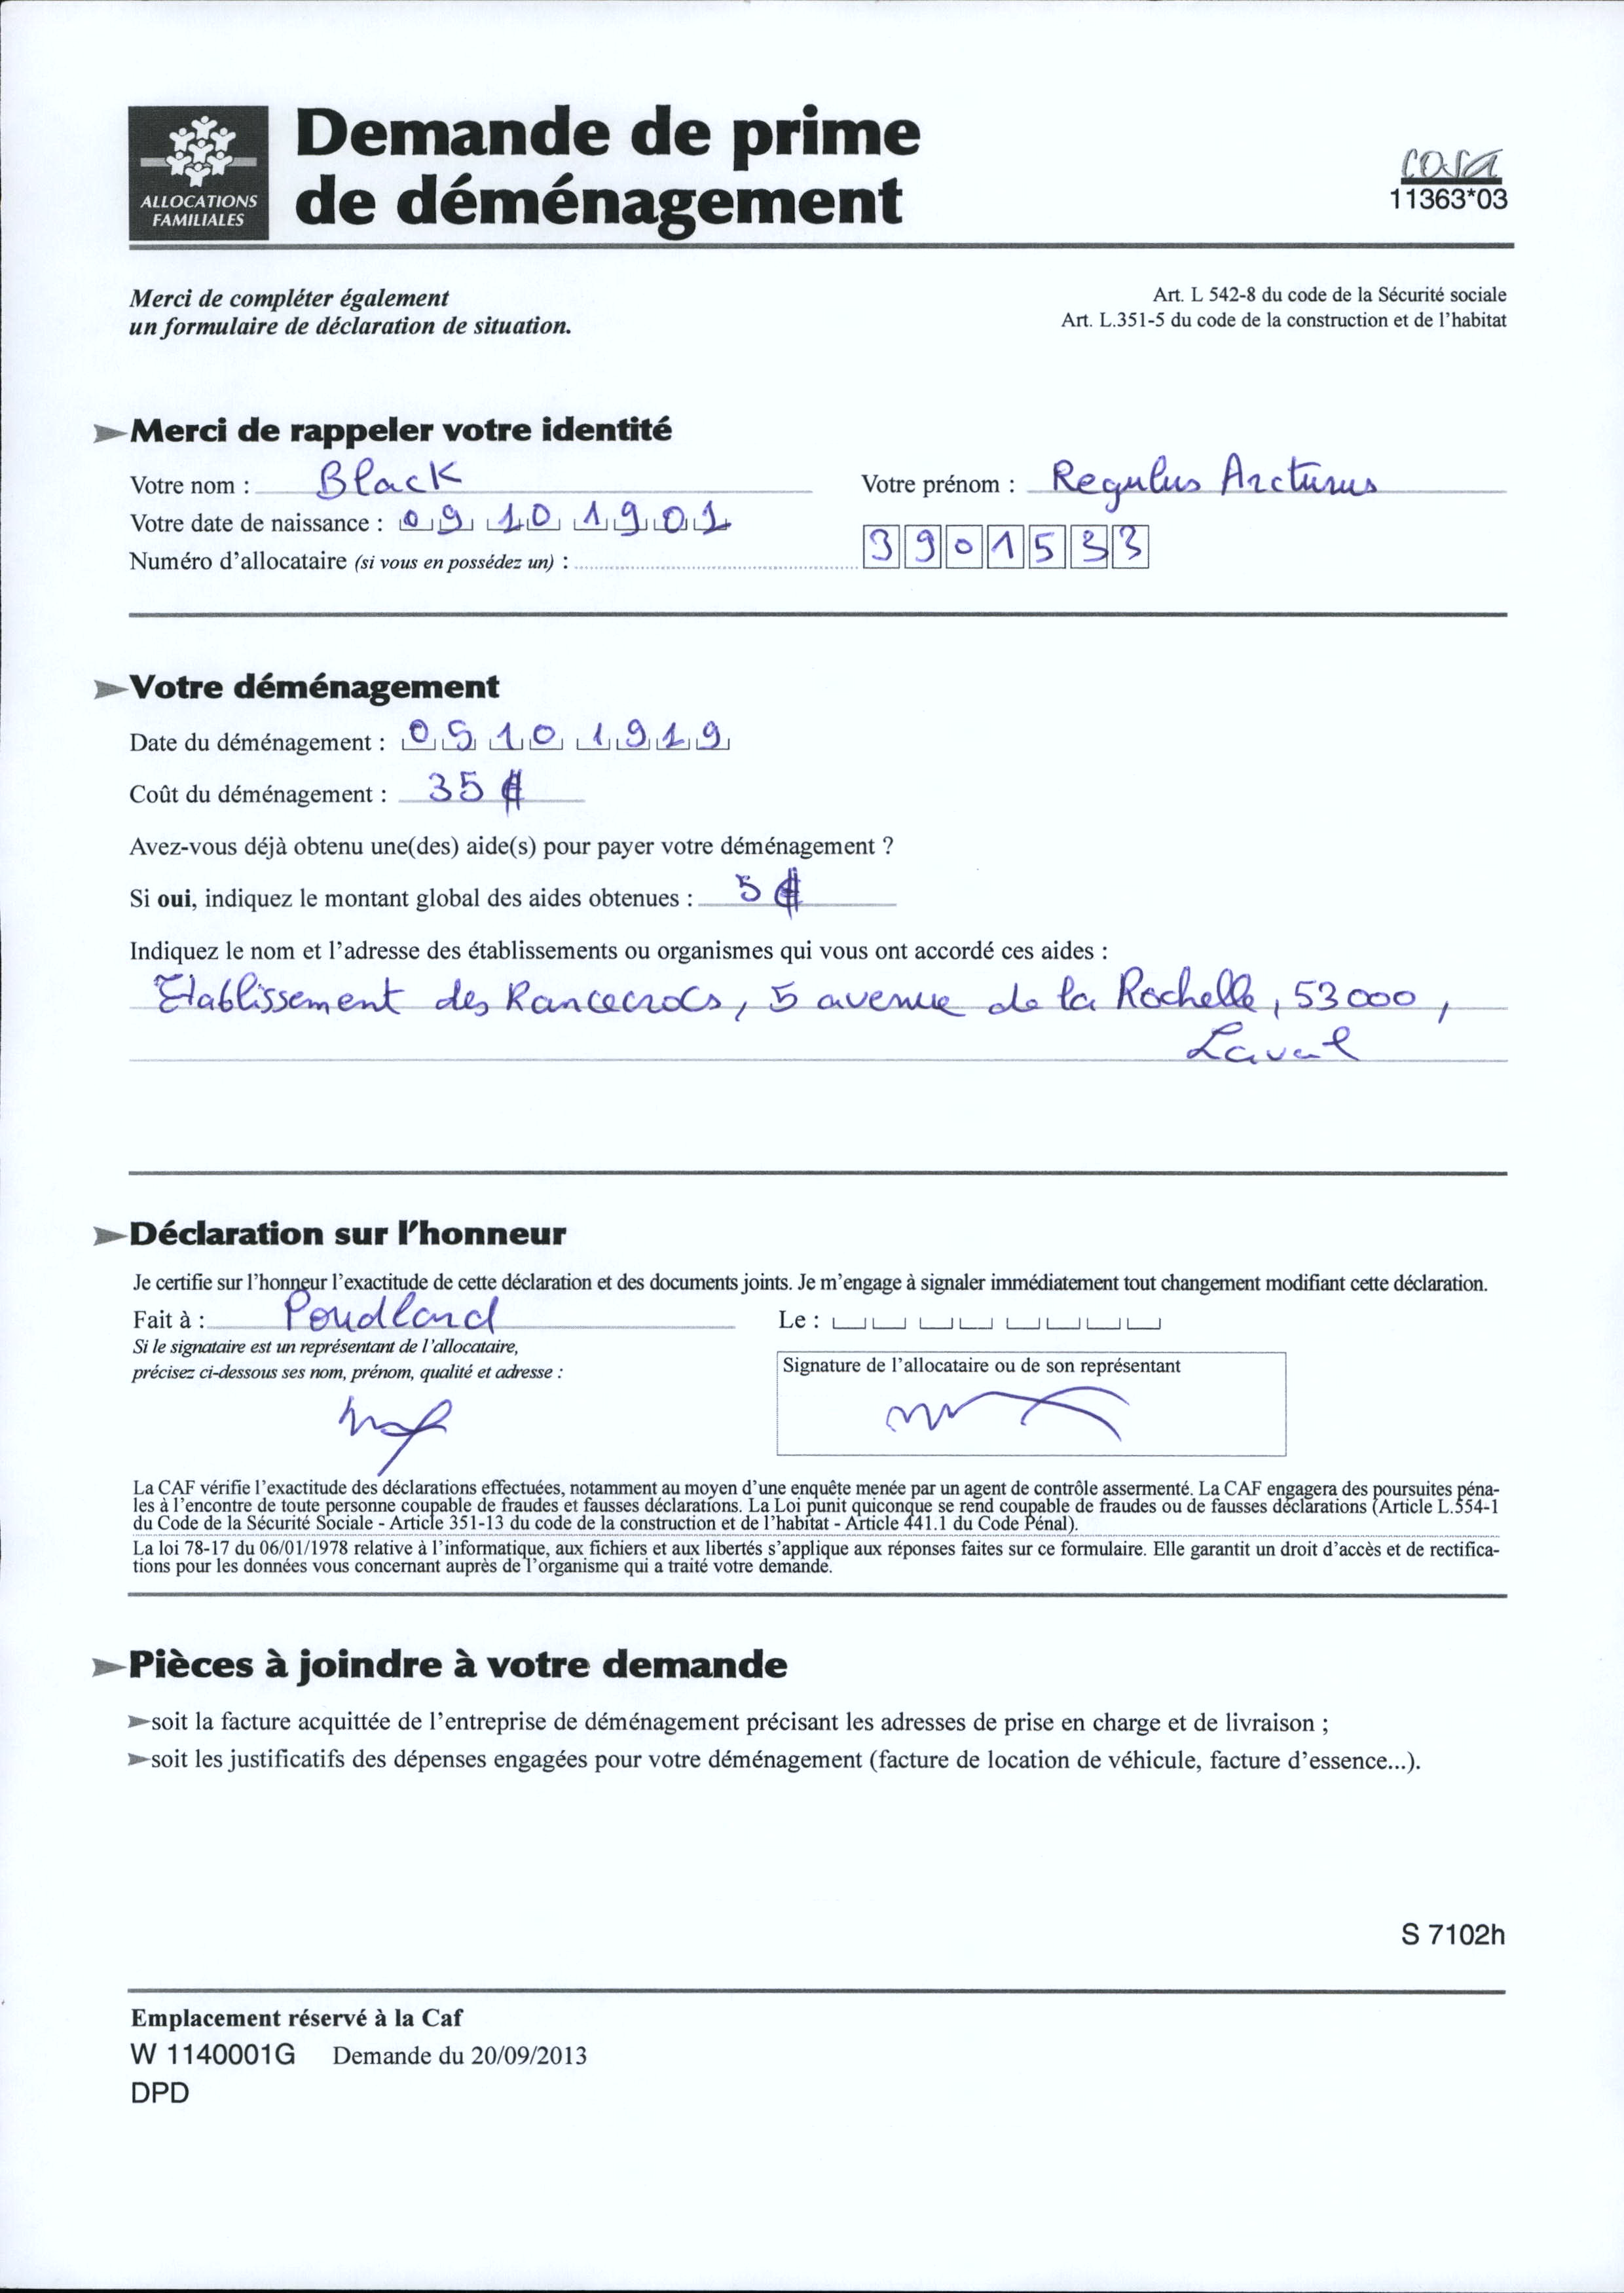 ALLOCATIONS
FAMILIALES
Demande de prime
de déménagement
cerfa
11363*03
Merci de compléter également
un formulaire de déclaration de situation.
Art. L 542-8 du code de la Sécurité sociale
Art. L.351-5 du code de la construction et de l'habitat
Merci de rappeler votre identité
Votre nom : Black Votre prénom : Regulus Arcturus
Votre date de naissance : 09 10 1901
Numéro d'allocataire (si vous en possédez un) : 3901533
Votre déménagement
Date du déménagement : 05 10 1919
Coût du déménagement : 35
Avez-vous déjà obtenu une(des) aide(s) pour payer votre déménagement ?
Si oui, indiquez le montant global des aides obtenues : 5
Indiquez le nom et l'adresse des établissements ou organismes qui vous ont accordé ces aides :
Etablissement des Rancecrocs, 5 avenue de la Rochelle, 53000,
Laval
Déclaration sur l'honneur
Je certifie sur l'honneur l'exactitude de cette déclaration et des documents joints. Je m'engage à signaler immédiatement tout changement modifiant cette déclaration.
Fait à : Poudlard Le :
Si le signataire est un représentant de l'allocataire,
précisez ci-dessous ses nom, prénom, qualité et adresse :
Signature de l'allocataire ou de son représentant
La CAF vérifie l'exactitude des déclarations effectuées, notamment au moyen d'une enquête menée par un agent de contrôle assermenté. La CAF engagera des poursuites péna-
les à l'encontre de toute personne coupable de fraudes et fausses déclarations. La Loi punit quiconque se rend coupable de fraudes ou de fausses déclarations (Article L.554-1
du Code de la Sécurité Sociale - Article 351-13 du code de la construction et de l'habitat - Article 441.1 du Code Pénal).
La loi 78-17 du 06/01/1978 relative à l'informatique, aux fichiers et aux libertés s'applique aux réponses faites sur ce formulaire. Elle garantit un droit d'accès et de rectifica-
tions pour les données vous concernant auprès de l'organisme qui a traité votre demande.
Pièces à joindre à votre demande
soit la facture acquittée de l'entreprise de déménagement précisant les adresses de prise en charge et de livraison ;
soit les justificatifs des dépenses engagées pour votre déménagement (facture de location de véhicule, facture d'essence...).
S 7102h
Emplacement réservé à la Caf
W 1140001G Demande du 20/09/2013
DPD